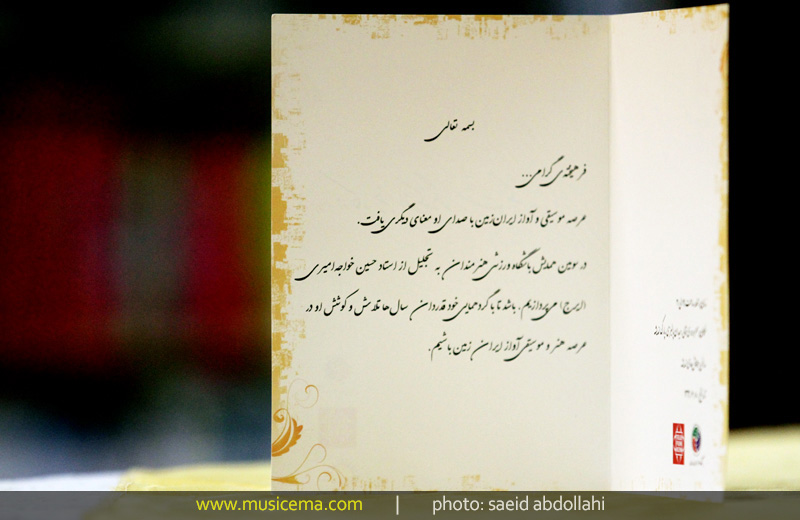 بسمه تعالی
فرهیخته‌ی گرامی...
عرصه موسیقی و آواز ایران‌زمین با صدای او معنای دیگری یافت.
در سومین همایش باشگاه ورزشی هنرمندان به تجلیل از استاد حسین خواجه‌امیری
(ایرج) می‌پردازیم. باشد تا با گردهمایی خود قدردان سال‌ها تلاش و کوشش او در
عرصه هنر و موسیقی آواز ایران زمین باشیم.
www.musicema.com | photo: saeid abdollahi